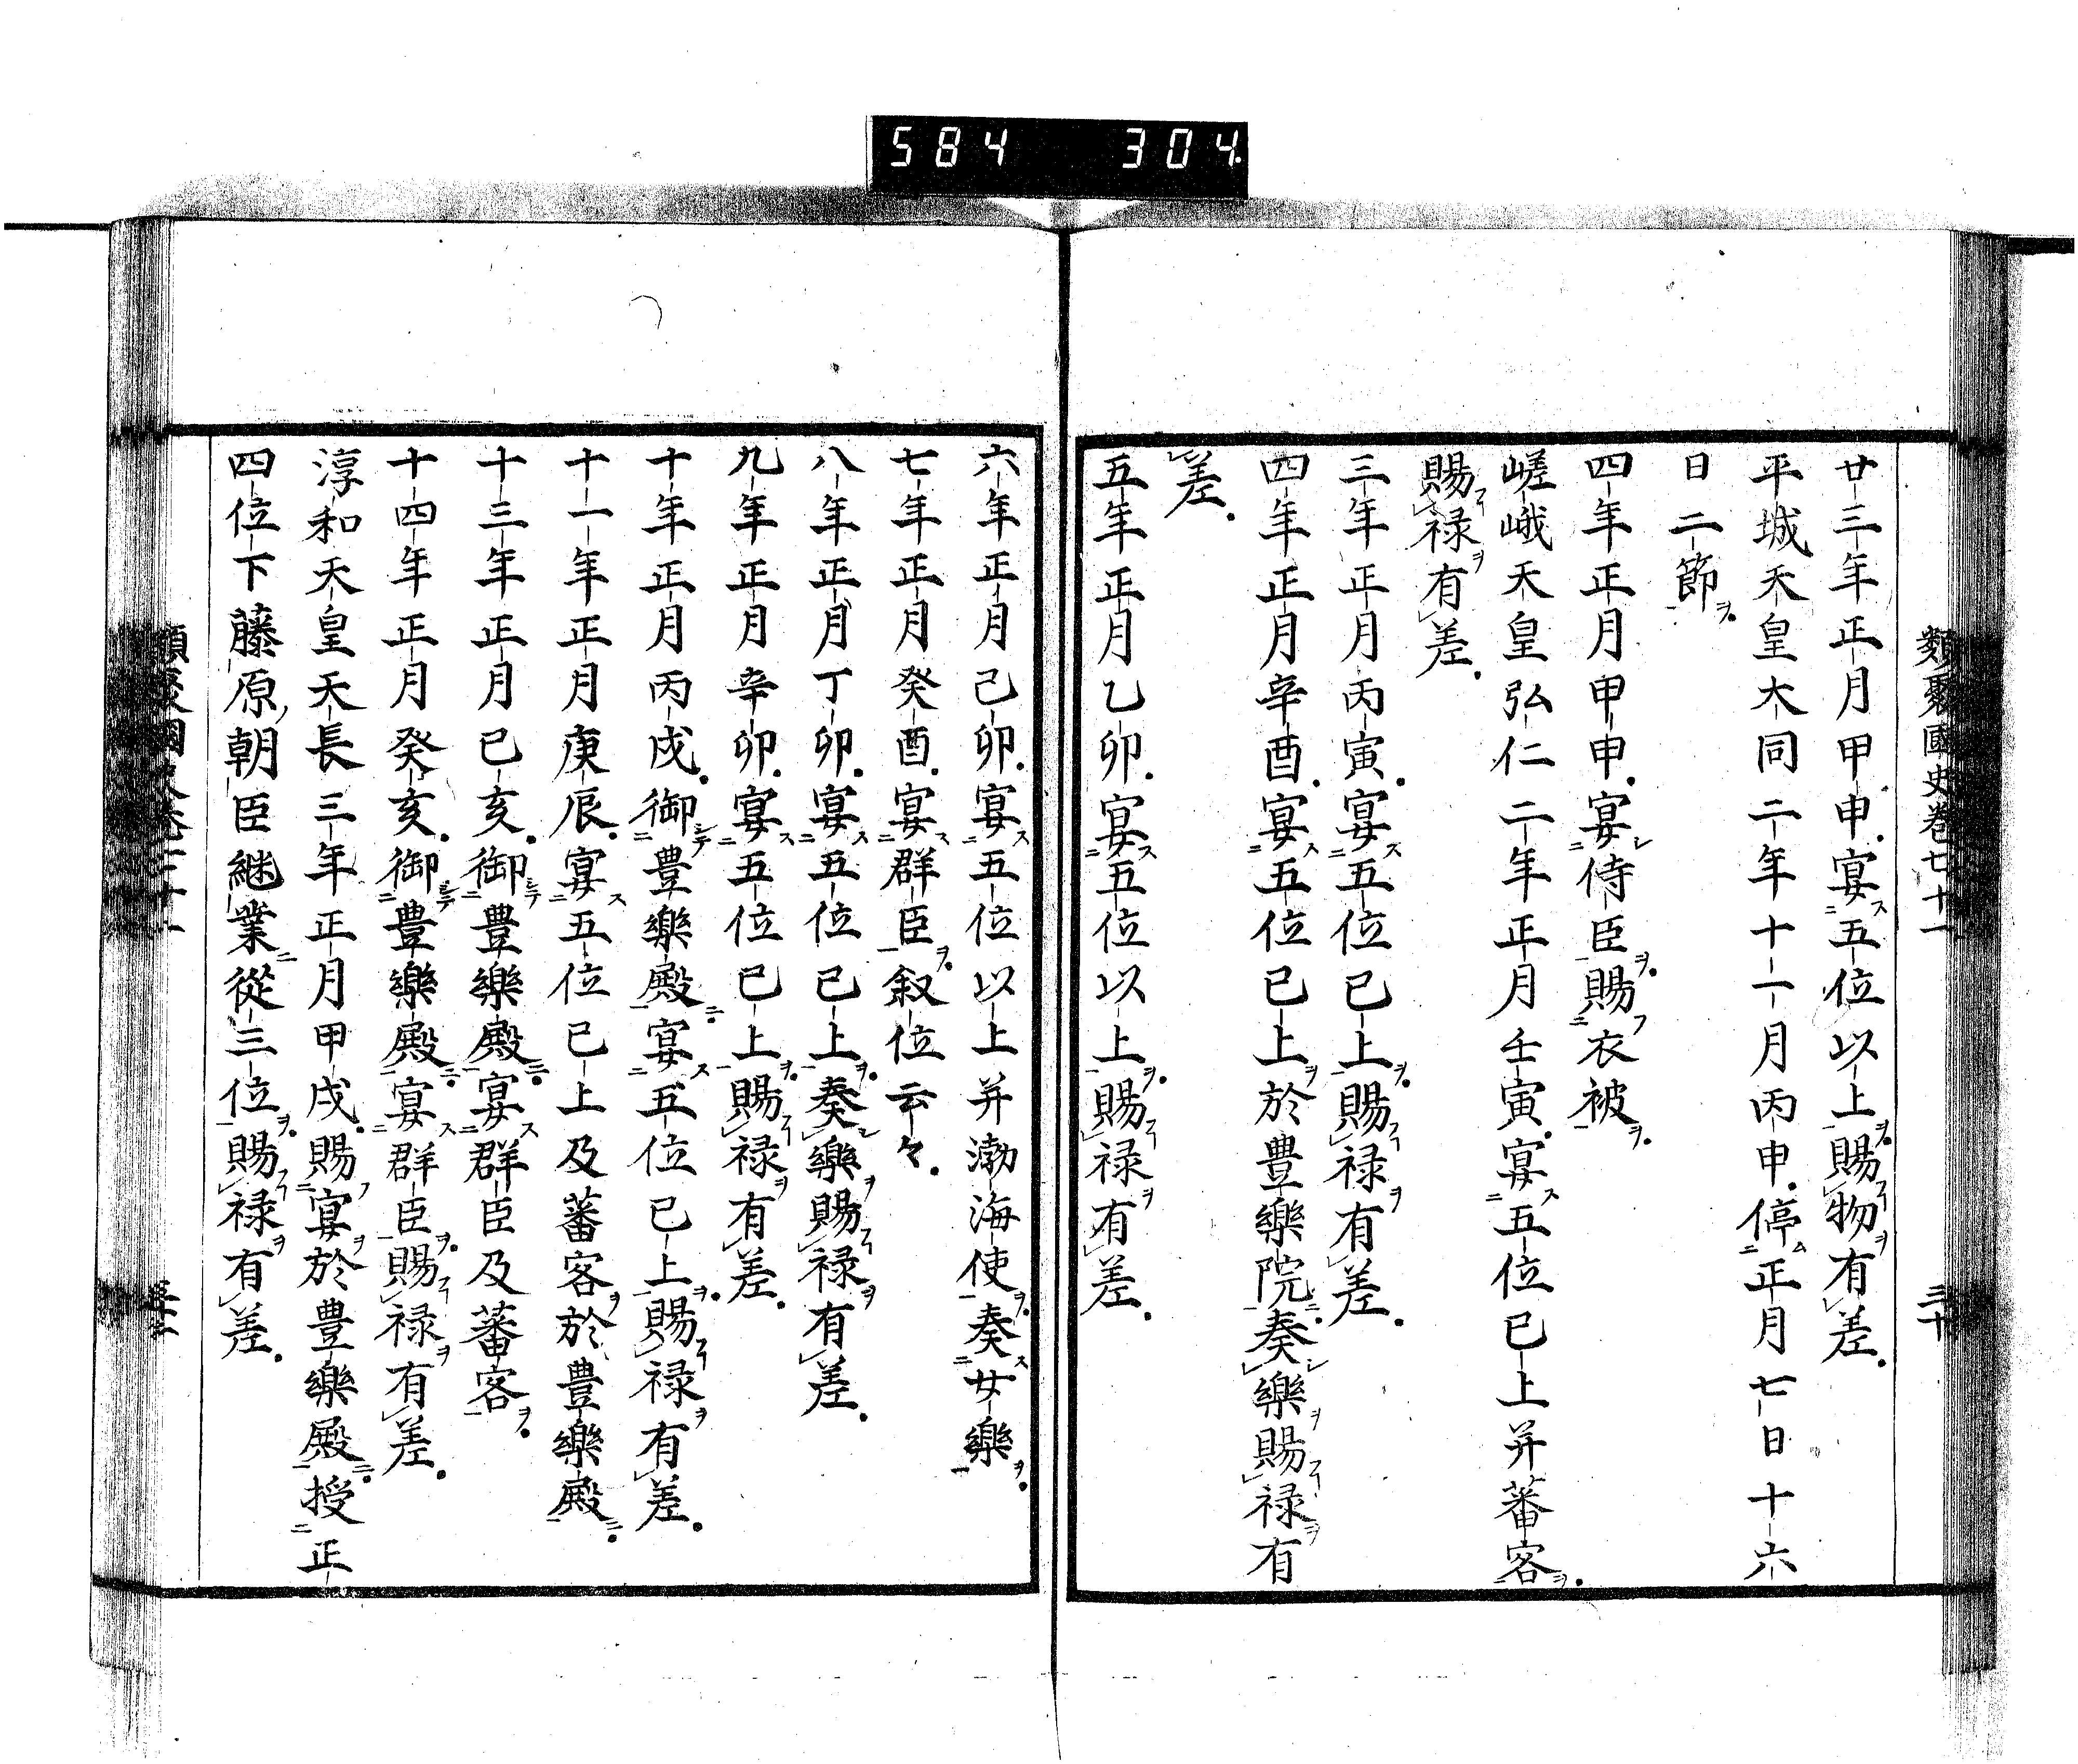 584 304
類聚國史卷七十一
三十
廿三年正月甲申宴五位以上賜物有差
平城天皇大同二年十一月丙申停正月七日十六
日二節
四年正月甲申宴侍臣賜衣被
嵯峨天皇弘仁二年正月壬寅宴五位已上并蕃客
賜禄有差
三年正月丙寅宴五位已上賜禄有差
四年正月辛酉宴五位已上於豊樂院奏樂賜禄有
差
五年正月乙卯宴五位以上賜禄有差
六年正月己卯宴五位以上并渤海使奏女樂
七年正月癸酉宴群臣叙位云々
八年正月丁卯宴五位已上奏樂賜禄有差
九年正月辛卯宴五位已上賜禄有差
十年正月丙戌御豊樂殿宴五位已上賜禄有差
十一年正月庚辰宴五位已上及蕃客於豊樂殿
十三年正月己亥御豊樂殿宴群臣及蕃客
十四年正月癸亥御豊樂殿宴群臣賜禄有差
淳和天皇天長三年正月甲戌賜宴於豊樂殿授正
四位下藤原朝臣継業從三位賜禄有差